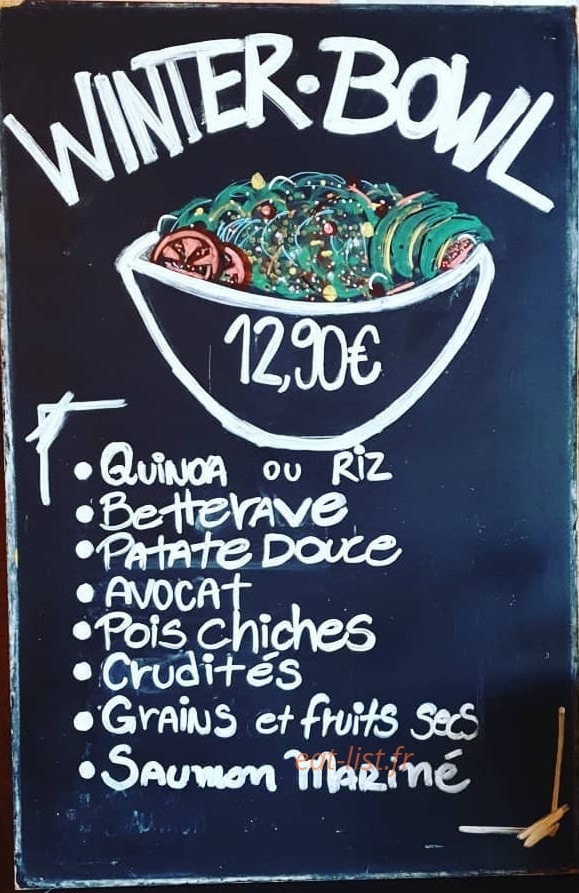 WINTER·BOWL
12,90€
• QUINOA OU RIZ
• Betterave
• PATATE DOUCE
• AVOCAT
• Pois chiches
• Crudités
• GRAINS et fruits secs
• SAUMON MARINÉ
eat-list.fr